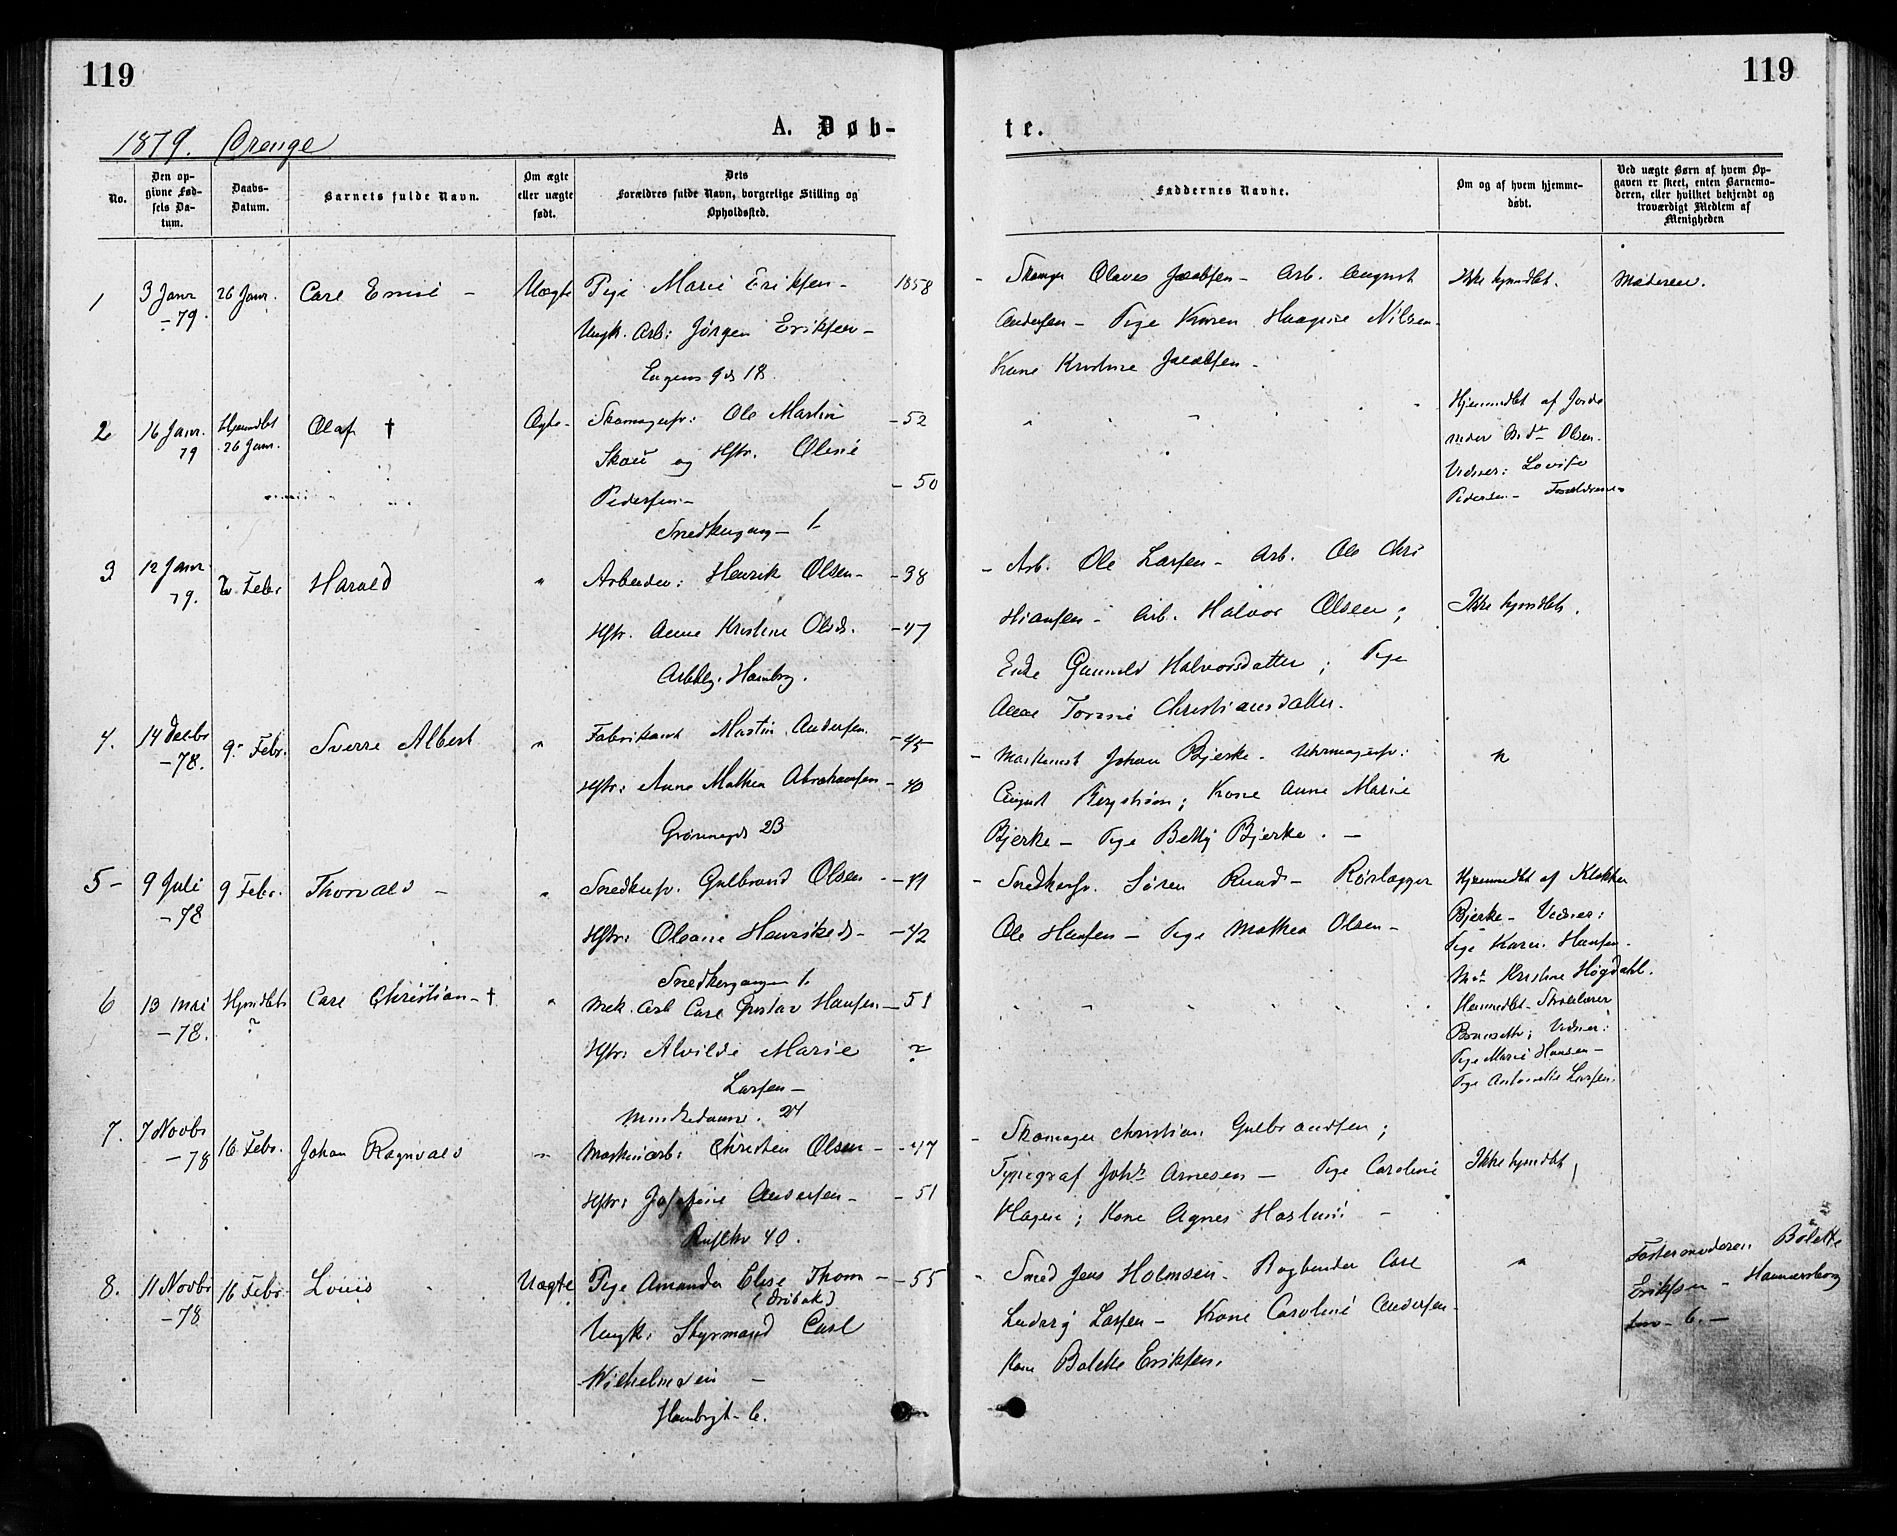 119
119
1879. Drenge
A. Døb-
te.
No.
Den op-
givne Fød-
sels Da-
tum.
Daabs-
Datum.
Barnets fulde Navn.
Om ægte
eller uægte
født.
Dets
Forældres fulde Navn, borgerlige Stilling og
Opholdssted.
Faddernes Navne.
Om og af hvem hjemme-
døbt.
Ved uægte Børn af hvem Op-
gaven er skeet, enten Barnemo-
deren, eller hvilket bekjendt og
troværdigt Medlem af
Menigheden
1
3 Janr
-79.
26 Janr.
Carl Emil -
Uægte
Pige Marie Eriksen -
1858
Ungk. Arb: Jørgen Eriksen -
Engens gd 18.
- Skomager Olaves Jacobsen - Arb. August
Andersen - Pige Karen Haagine Nilsen -
Kone Kristine Jacobsen -
Ikke hjmdbt.
Moderen.
2
16 Janr.
79
Hjemdbt
26 Janr.
Olaf †
Ægte -
Skomagersv: Ole Martin
- 52
Skau og Hstr. Oline
- 50
Pedersen -
Snedkergang - 1
Hjemmedbt af Jorde
moder Olsen.
Vidner: Lovise
Pedersen - Forældrene
3
12 Janr
79.
2 Febr
Harald
"
Arbeider: Henrik Olsen -
- 38
Hstr. Anne Kristine Olsdr.
- 47
Arbblg. Hambrg.
- Arb. Ole Larsen - Arb. Ole Chri
stiansen - Arb. Halvor Olsen;
Enke Gunnild Halvorsdatter; Pige
Anne Tomine Christiansdatter.
Ikke hjmdbt.
4.
14 Decbr
-78.
9 Febr.
Sverre Albert
"
Fabrikant Martin Andersen
- 45
Hstr: Anne Mathea Abrahamsen
- 40
Grønnegd 23
- Maskinist Johan Bjerke - Uhrmagersv:
August Bergstrøm; Kone Anne Marie
Bjerke - Pige Betty Bjerke. -
"
5 -
9 Juli
-78
9 Febr.
Thorvald -
"
Snedkersv. Gulbrand Olsen
- 41
Hstr: Oleane Henriksdr -
- 42
Snedkergangen 1.
- Snedkersv. Søren Ruud - Rørlægger
Ole Hansen - Pige Mathea Olsen -
Hjemmedbt af Klokker
Bjerke - Vidner:
Pige Karen Hansen -
Kristine Høgdahl.
6
13 Mai
-78.
Hjmdbt
?
Carl Christian - †
"
Mek. Arb Carl Gustav Hansen
- 51
Hstr: Alvilde Marie
?
Larsen -
Munkedamsv. 24
Hemmedbt - Skolelærer
Vidner:
Pige Marie Hansen -
Pige Antonette Larsen.
7.
7 Novbr
-78
16 Febr.
Johan Ragnvald
"
Maskinarb: Christen Olsen -
- 47
Hstr: Josefine Andersen -
- 51
40.
- Skomager Christian Gulbrandsen;
Typograf Johs Arnesen - Pige Caroline
Hagen; Kone Agnes Haslund -
Ikke hjmdbt
8.
11 Novbr
-78
16 Febr.
Louis
Uægte
Pige Amanda Elise Thom -
- 55
(Drøbak)
Ungk: Styrmand Carl
Wilhelmsen -
Hambrgt - 6.
- Smed Jens Holmsen - Bogbinder Carl
Ludvig Larsen - Kone Caroline Andersen -
Kone Bolette Eriksen.
"
Fostermoderen Bolette
Eriksen - Hammersborg
6. -